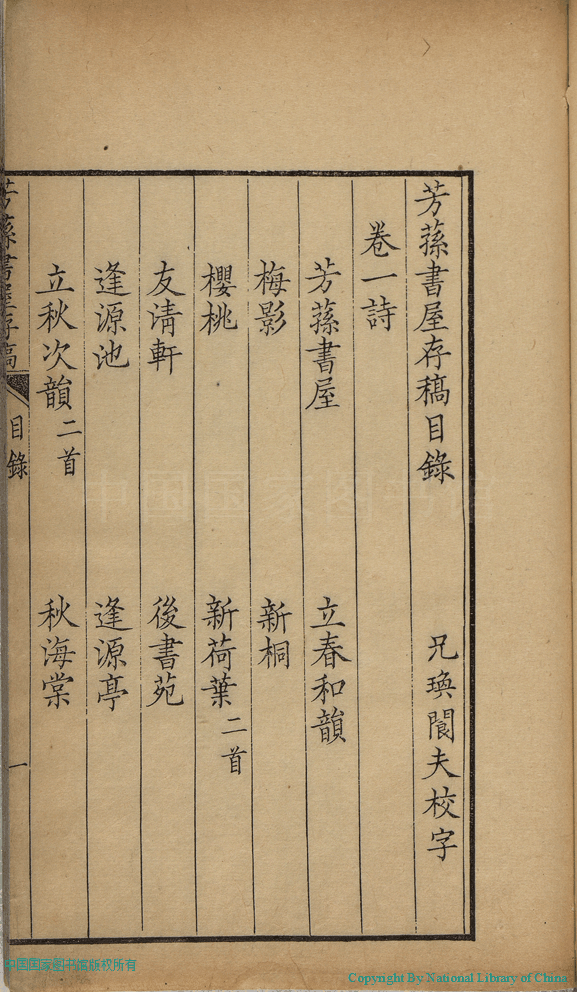 芳蓀書屋存稿目錄 兄瑍閬夫校字
卷一詩
芳蓀書屋 立春和韻
梅影 新桐
櫻桃 新荷葉二首
友清軒 後書苑
逢源池 逢源亭
立秋次韻二首 秋海棠
芳蓀書屋存稿 目錄 一
中国国家图书馆
中国国家图书馆版权所有
Copyright By National Library of China